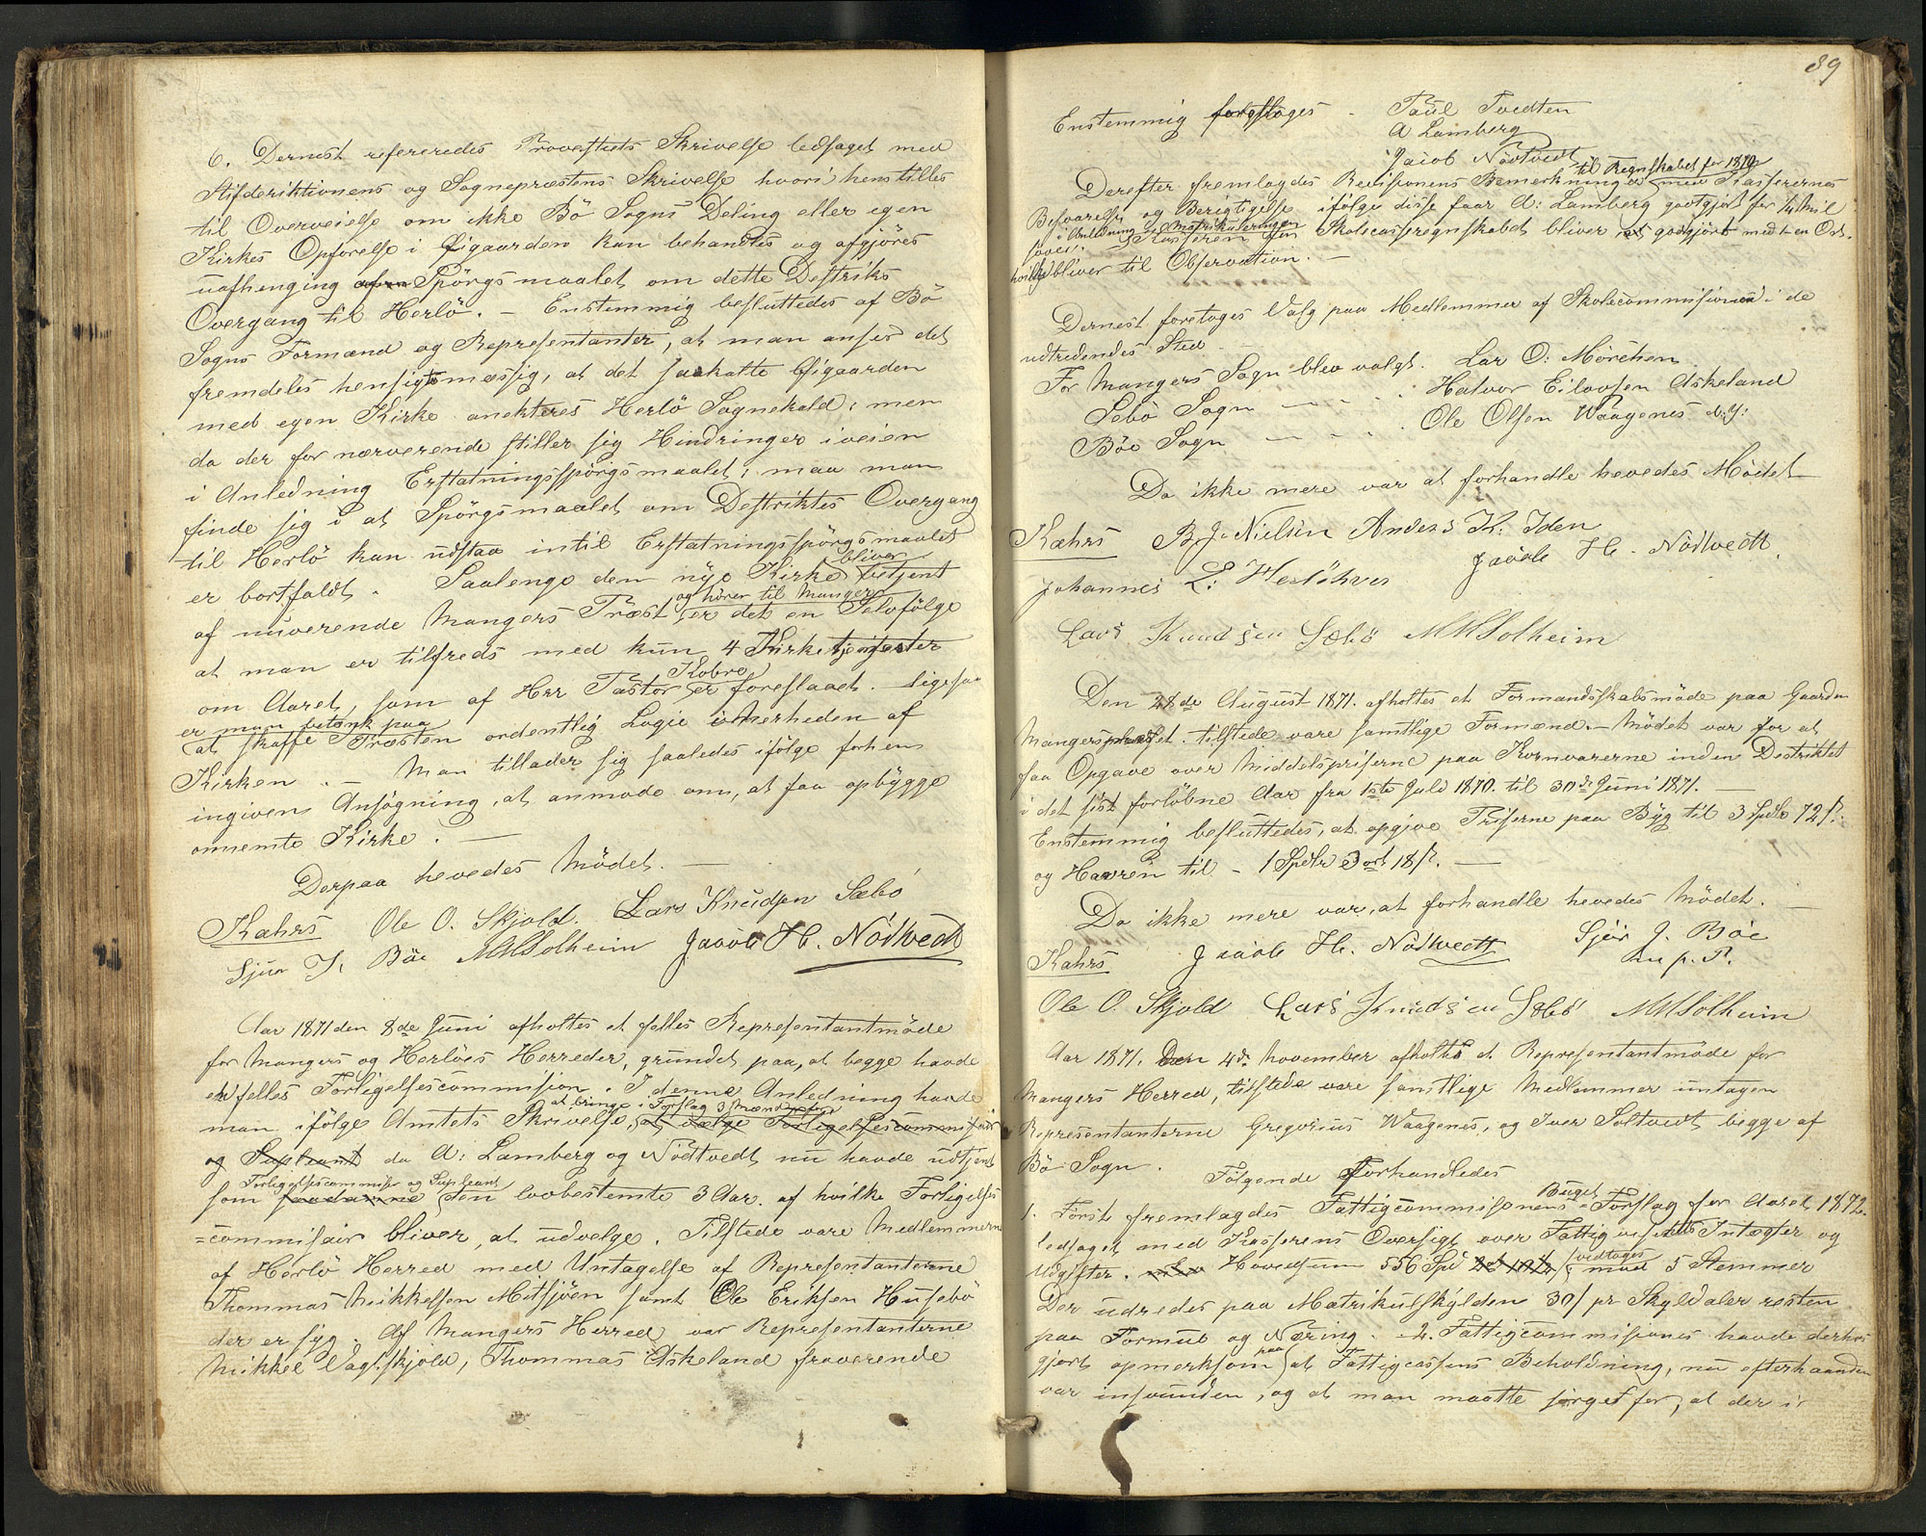 6. Dernest refereredes Provestiets Skrivelse ledsaget med
Stifderiktionens og Sognepræstens Skrivelse hvori henstilles
til Overveielse om ikke Bö Sogns Deling eller egen
Kirkes Opförelse i Öigaarden kan behandles og afgjöres
uafhenging Spörgsmaalet om dette Destrikts
Overgang til Herlö. – Enstemmig besluttedes af Bö
Sogns Formænd og Represententer, at man anser det
fremdeles hensigtsmæssig, at det saakalte Öigaarden
med egen Kirke anekteres Herlö Sognekald; men
da der for nærverende stiller sig Hindringer iveien
i Anledning Erstatningsspörgsmaalet, maa man
finde sig i at Spörgsmaalet om Destriktes Overgang
til Herlö kan udstaa intil Erstatningsspörgsmaalet
er bortfaldt. Saalenge den nye Kirke bliver betjent
af nuverende Mangers Præst og hörer til Manger er det en Selvfölge
at man er tilfreds med kun 4 Kirketjenester
om Aaret, som af Herr Pastor Kobro er foreslaaet. ligesaa
er man betenk paa
at skaffe Præsten ordentlig Logie i Nerheden af
Kirken. – Man tillader sig saaledes ifölge forhen
ingiven Ansögning, at anmode om, at faa opbygge
omnemte Kirke. –
Derpaa hevedes Mödet. –
Kahrs Ole O. Skjold. Lars Knudsen Sæbö
Sjur J. Böe MMSolheim Jacob H. Nödtvedt
Aar 1871 den 8de Juni afholtes et felles Representantmöde
for Mangers og Herlöes Herreder, grundet paa, at begge havde
en felles Forligelsescommision. I denne Anledning havde
at bringe i Forslag 3 Mænd
man ifölge Amtets Skrivelse, at vælge Forligelsescommisair
og Supleant da A: Lamberg og Nödtvedt nu havde udtjent
Forligelsescommiser og Supleant
som saadanne den lovbestemte 3 Aar. af hvilke Forligelses
=commisair bliver, at udvelge. Tilstede vare Medlemmern
af Herlö Herred med Untagelse af Representanterne
Thommas Mikkelsen Mitsjöen samt Ole Eriksen Husebö
der er syg. Af Mangers Herred var Representanterne
Mikkel Dagl. Skjold, Thommas Askeland fraverende
89
Enstemmig foreslages . Paul Tvedten
A Lamberg
Jacob Nödtvedt
til Regnskabet for 1870
Derefter fremlagdes Revisionens Bemerkninger med Kassererens
Besvarelse og Berigtigelse ifölge disse faar A: Lamberg godtgjort for 1/4 Mil
i Anledning Matrikuleringen
Kasseren for Skolecasseregnskabet bliver godgjort med en Ort.
hvilket bliver til Observation. –
Dernest foretages Valg paa Medlemmer af Skolecommisionen i de
udtredendes Sted
For Mangers Sogn blev valgt. Lar O: Mörchen
Sebö Sogn — — . . Halvor Eilovsen Askeland
Böe Sogn — — . . Ole Olsen Waagenes d: y:
Da ikke mere var at forhandle hevedes Mödet
Kahrs B. J. Nielsen Anders K. Iden
Johannes L: Herlöhver Jacob H. Nödtvedt.
Lars Knudsen Sæbö MMSolheim
Den 28de August 1871. afholtes et Formandskabsmöde paa Gaarden
Manger tilstede vare samtlige Formænd. – Mödet var for at
faa Opgave over Middelspriserne paa Kornvarerne inden Destriktet
i det sist forlöbne Aar fra 1ste Juli 1870. til 30de Juni 1871. —
Enstemmig besluttedes, at opgive Priserne paa Byg til 3 Spdlr 72 s.
og Havren til – 1 Spdlr 3 ort 18 s. —
Da ikke mere var, at forhandle hevedes Mödet. –
Kahrs Jacob H. Nödtvedt Sjur J. Böe
m p. P.
Ole O. Skjold Lars Knudsen Sæbö MMSolheim
Aar 1871. Den 4de November afholtes et Representantmöde for
Mangers Herred, tilstede vare samtlige Medlemmer untagen
Representanterne Gregorius Waagenes, og Iver Toltvedt begge af
Bö Sogn. Fölgende Forhandledes
1. Först fremlagdes Fattigcommisionens Buget Forslag for Aaret 1872.
ledsaget med Kasserens Oversigt over Fattigvesenets Intægter og
Udgifter. Hovedsum 556 Spd vedtoges med 5 Stemmer
Der udredes paa Matrikulskylden 30 s pr Skyldaler resten
paa Formue og Næring. – 2. Fattigcommisiones havde derhos
gjort opmerksom paa at Fattigcassens Beholdning, nu efterhaanden
var insvunden, og at man maatte sörget for, at der i